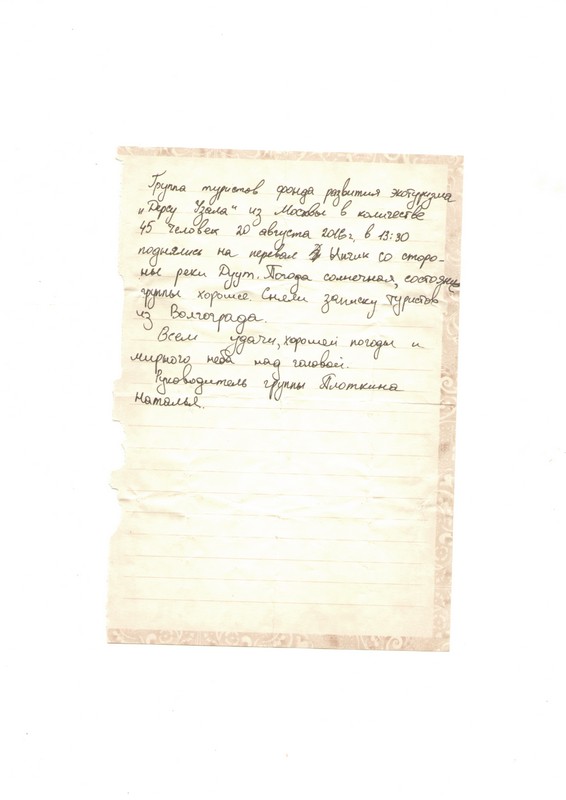 Группа туристов фонда развития экотуризма
„Дерсу Узала“ из Москвы в количестве
45 человек 20 августа 2016г. в 13:30
поднялись на перевал Ынчик со сторо-
ны реки Дуут. Погода солнечная, состояние
группы хорошее. Сняли записку туристов
из Волгограда.
Всем удачи, хорошей погоды и
мирного неба над головой.
Руководитель группы Плоткина
Наталья.